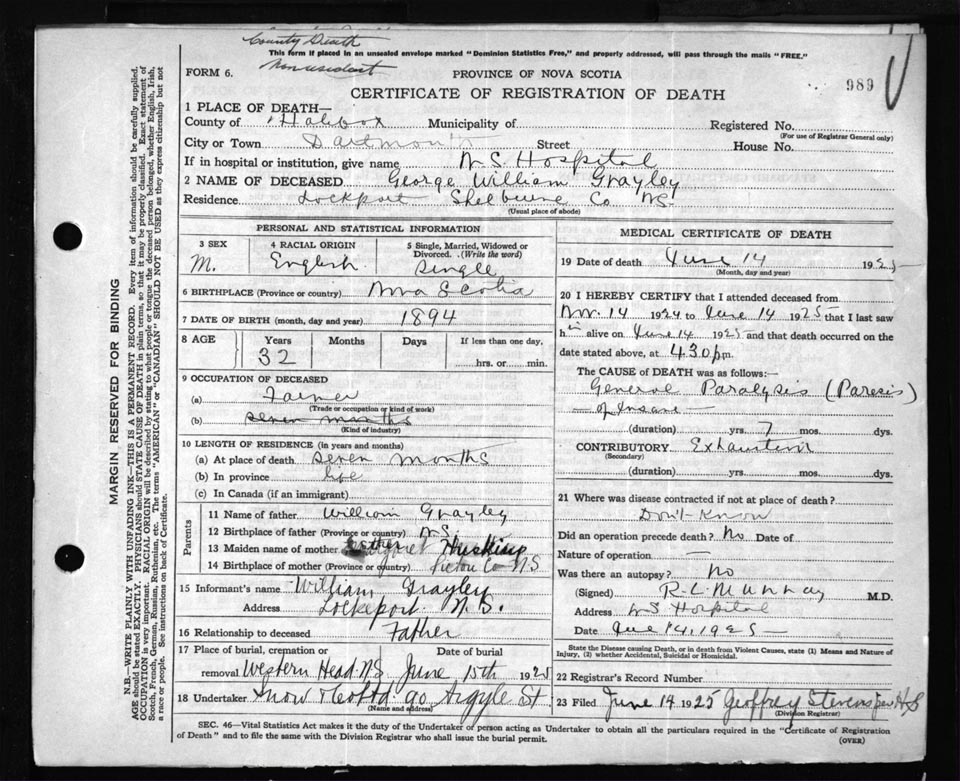 County Death
Non resident
This form if placed in an unsealed envelope marked "Dominion Statistics Free," and properly addressed, will pass through the mails "FREE."
FORM 6.
PROVINCE OF NOVA SCOTIA
989
CERTIFICATE OF REGISTRATION OF DEATH
1 PLACE OF DEATH—
County of Halifax Municipality of Registered No.
(For use of Registrar General only)
City or Town Dartmouth Street House No.
If in hospital or institution, give name N S. Hospital
2 NAME OF DECEASED George William Grayley
Residence Lockport Shelburne Co NS.
(Usual place of abode)
PERSONAL AND STATISTICAL INFORMATION
3 SEX 4 RACIAL ORIGIN 5 Single, Married, Widowed or Divorced. (Write the word)
M. English. Single
6 BIRTHPLACE (Province or country) Nova Scotia
7 DATE OF BIRTH (month, day and year) 1894
8 AGE Years Months Days If less than one day,
32 hrs. or min.
9 OCCUPATION OF DECEASED
(a) Farmer
(Trade or occupation or kind of work)
(b) seven months
(Kind of industry)
10 LENGTH OF RESIDENCE (in years and months)
(a) At place of death seven months
(b) In province life
(c) In Canada (if an immigrant)
Parents
11 Name of father William Grayley
12 Birthplace of father (Province or country) N.S.
13 Maiden name of mother Huskins
14 Birthplace of mother (Province or country) Pictou Co N.S
15 Informant's name William Grayley
Address Lockeport. N. S.
16 Relationship to deceased Father
17 Place of burial, cremation or removal Western Head N.S Date of burial June 15th 1925
18 Undertaker Snow & Co Ltd 90 Argyle St
(Name and address)
MEDICAL CERTIFICATE OF DEATH
19 Date of death June 14 1925
(Month, day and year)
20 I HEREBY CERTIFY that I attended deceased from
Nov. 14 1924 to June 14 1925 that I last saw
him alive on June 14 1925 and that death occurred on the
date stated above, at 4.30 pm.
The CAUSE of DEATH was as follows:-
General Paralysis (Paresis)
— of Insane —
(duration) yrs. 7 mos. dys.
CONTRIBUTORY Exhaustion
(Secondary)
(duration) yrs. mos. dys.
21 Where was disease contracted if not at place of death?
Don't Know
Did an operation precede death? No Date of
Nature of operation —
Was there an autopsy? No
(Signed) R. L. Murray M.D.
Address NS Hospital
Date June 14, 1925 —
State the Disease causing Death, or in death from Violent Causes, state (1) Means and Nature of
Injury, (2) whether Accidental, Suicidal or Homicidal.
22 Registrar's Record Number
23 Filed June 14 1925 Geoffrey Stevens
(Division Registrar)
SEC. 46—Vital Statistics Act makes it the duty of the Undertaker or person acting as Undertaker to obtain all the particulars required in the "Certificate of Registration
of Death" and to file the same with the Division Registrar who shall issue the burial permit. (OVER)
MARGIN RESERVED FOR BINDING
N.B.—WRITE PLAINLY WITH UNFADING INK—THIS IS A PERMANENT RECORD. Every item of information should be carefully supplied.
AGE should be stated EXACTLY. PHYSICIANS should STATE CAUSE OF DEATH in plain terms, so that it may be properly classified. Exact statement of
OCCUPATION is very important. RACIAL ORIGIN will be described by stating to what people or tongue the deceased person belonged, whether English, Irish,
Scotch, French, German, Russian, Ruthenian, etc. The terms "AMERICAN" or "CANADIAN" SHOULD NOT BE USED as they express citizenship but not
a race or people. See instructions on back of Certificate.